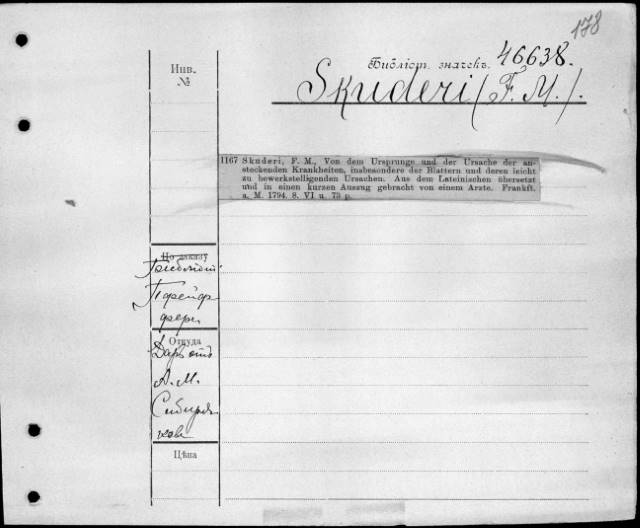 178
Библіот. значекъ. 46638.
Skuderi (F. M.).
Инв.
№
1167 Skuderi, F. M., Von dem Ursprunge und der Ursache der an-
steckenden Krankheiten, insbesondere der Blattern und deren leicht
zu bewerkstelligenden Ursachen. Aus dem Lateinischen übersetzt
und in einen kurzen Auszug gebracht von einem Arzte. Frankft.
a. M. 1794. 8. VI u. 75 p.
По заказу
Откуда
Даръ отъ
А. М.
Сибиря-
кова
Цѣна